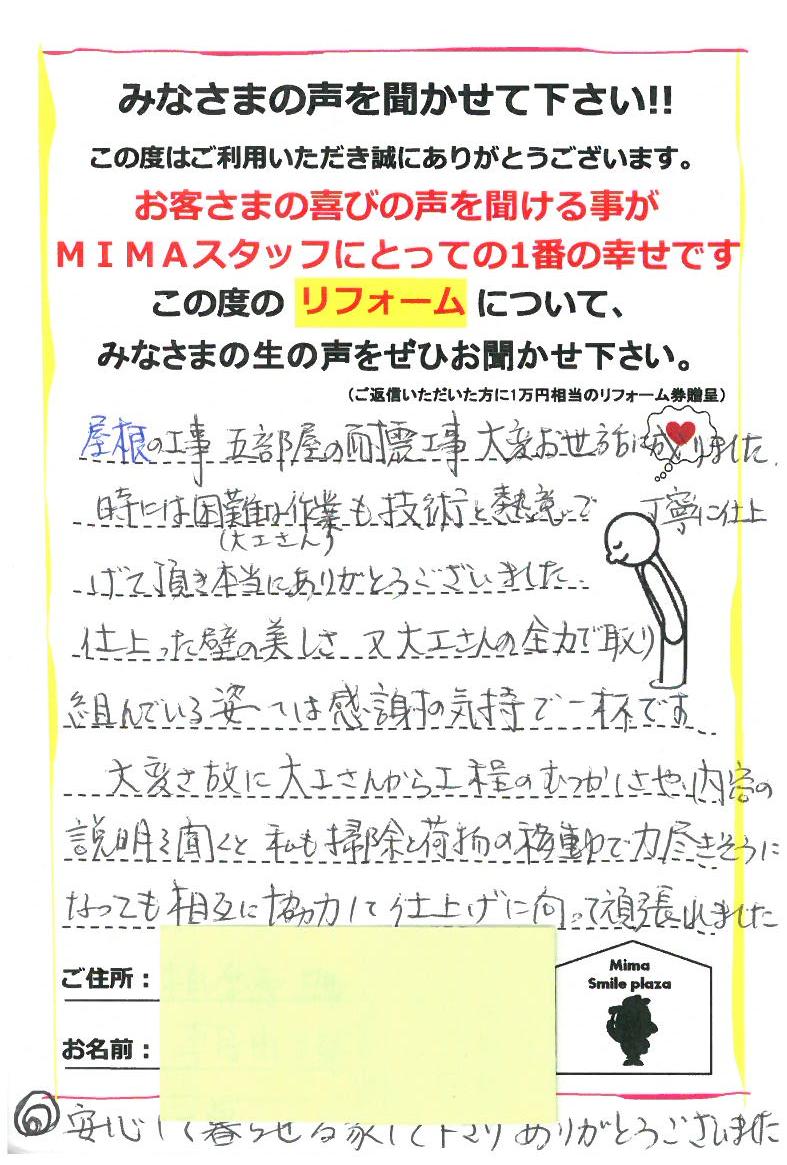 みなさまの声を聞かせて下さい!!
この度はご利用いただき誠にありがとうございます。
お客さまの喜びの声を聞ける事が
ＭＩＭＡスタッフにとっての1番の幸せです
この度の リフォーム について、
みなさまの生の声をぜひお聞かせ下さい。
（ご返信いただいた方に1万円相当のリフォーム券贈呈）
屋根の工事 五部屋の耐震工事 大変お世話に成りました.
時には困難な作業も技術と熱意で 丁寧に仕上
(大工さん)
げて頂き本当にありがとうございました.
仕上った壁の美しさ 又大工さんの全力で取り
組んでいる姿へは感謝の気持で一杯です
大変さ故に大工さんから工程のむつかしさや、内容の
説明を聞くと 私も掃除と荷物の移動で力尽きそうに
なっても相互に協力して仕上げに向って頑張れました
ご住所：
お名前：
Mima
Smile plaza
安心して暮らせる家して下さりありがとうございました